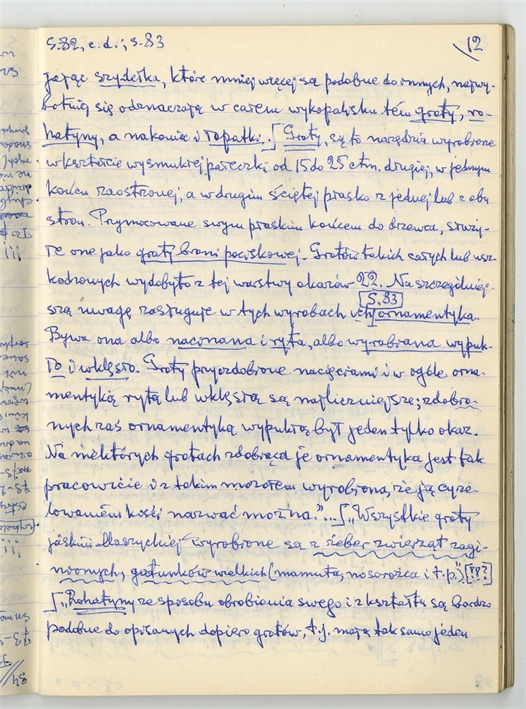 S.82, c.d.; s.83
12
jając szydełka, które mniej więcej są podobne do innych, najwy-
bitniej się odznaczają w całem wykopalisku tem groty, ro-
hatyny, a nakoniec i łopatki..[Groty, są to narzędzia wyrobione
w kształcie wysmukłej pałeczki od 15 do 25 ctm. długiej, w jednym
końcu zaostrzonej, a w drugim ściętej płasko z jednej lub z obu
stron. Przymocowane swym płaskim końcem do drzewa, służy-
łe one jako groty broni pociskowej. Grotów takich całych lub usz-
kodzonych wydobyto z tej warstwy okazów 22. Na szczególniej-
szą uwagę zasługuje w tych wyrobach ich ornamentyka.
[S.83]
Bywa ona albo nacinana i ryta, albo wyrobiona wypuk-
ło i wklęsło. Groty przyozdobione nacięciami i w ogóle orna-
mentyką rytą lub wklęsłą są najliczniejsze; zdobio-
nych zaś ornamentyką wypukłą był jeden tylko okaz.
Na niektórych grotach zdobiąca je ornamentyka jest tak
pracowicie i z takim mozołem wyrobiona, że ją cyze-
lowaniem kości nazwać można."...[„Wszystkie groty
jaskini Maszyckiej wyrobione są z żeber zwierząt zagi-
nionych, gatunków wielkich (mamuta, nosorożca i t.p.)" [!?]
[„Rohatyny ze sposobu obrobienia swego i z kształtu są bardzo
podobne do opisanych dopiero grotów, t.j. mają tak samo jeden